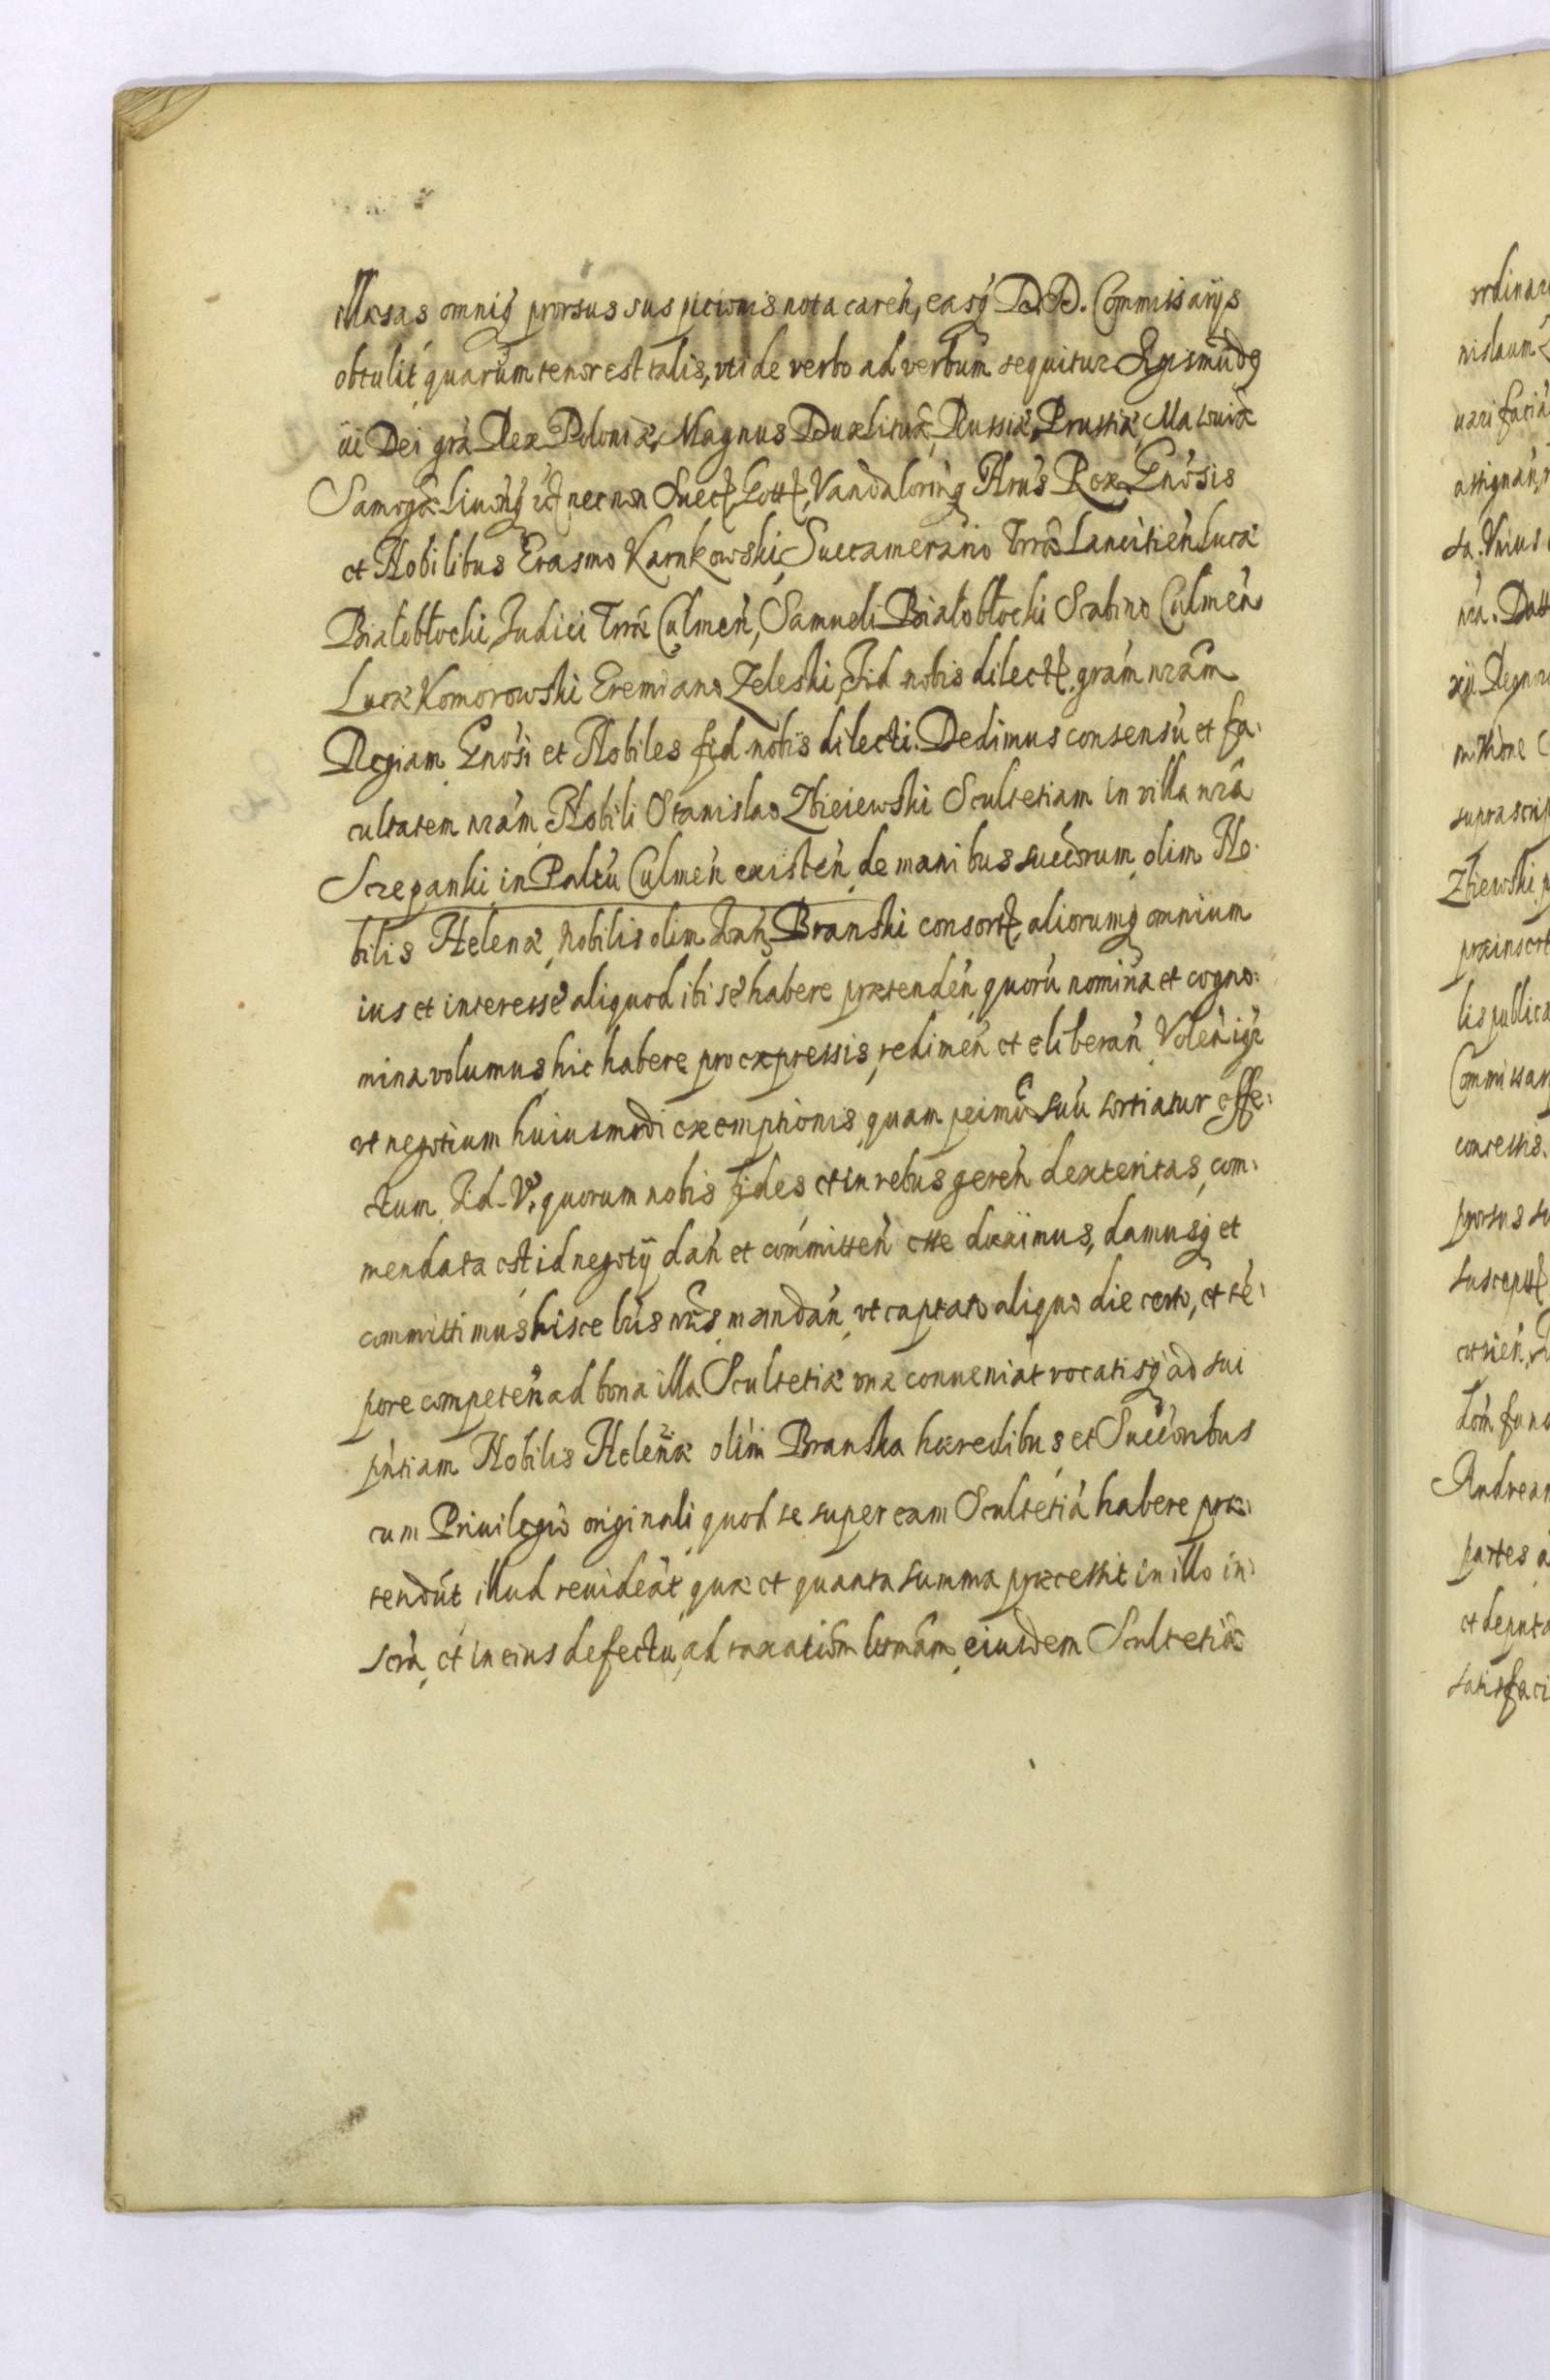 illæsas omniq prorsus suspicionis nota careń, easq D.D. Commissarijs
obtulit quarum tenor est talis, vti de verbo ad verbum sequitur Sigismūdꝯ
iii Dei gra Rex Poloniæ, Magnus Dux Lituæ, Russiæ, Prussiæ, Masouiæ
Samogæ Liuonq nec non Suec, Gott, Vandalorūq Hrus Rex, Gnosis
et Nobilibus Erasmo Karnkowski, Succamerario Trræ Lancitień Lucæ
Białobłocki, Judici Trræ Culmeń, Samueli Białobłocki Scabino Culmeń
Lucæ Komorowski Eremiano Zeleski, Fid nobis dilect. gram nram
Regiam Gnosi et Nobiles fid nobis dilecti. Dedimus consensū et fa:
cultatem nram Nobili Stanislao Zbieiewski Scultetiam in villa nra
Sczepanki in Paltū Culmeń existeń, de manibus succorum olim No:
bilis Helenæ, Nobilis olim Joań Branski consort, aliorumq omnium
ius et interesse aliquod ibi se habere prætendeń quorū nomina et cogno:
mina volumus hic habere pro expressis, redimeń et eliberań Voleń igr
vt negotium huiusmodi exemptionis quam primū suū sortiatur effe:
ctum. Fid. V. quorum nobis fides et in rebus gereń dexteritas, com:
mendata est id negotij dań et committeń esse duximus, damusq et
committimus hisce lris nris mandań, vt captato aliquo die certo, et tē:
pore competeń ad bona illa Scultetiæ vna conueniāt vocatisq ad sui
pntiam Nobilis Helenæ olim Branska hæredibus et Succoribus
cum Priuilegio originali quod se super eam Scultetiā habere præ:
tendūt illud reuideāt, quæ et quanta summa præcessit in illo in:
scra, et in eius defectu, ad taxatiōm ltmam, eiusdem Scultetiæ